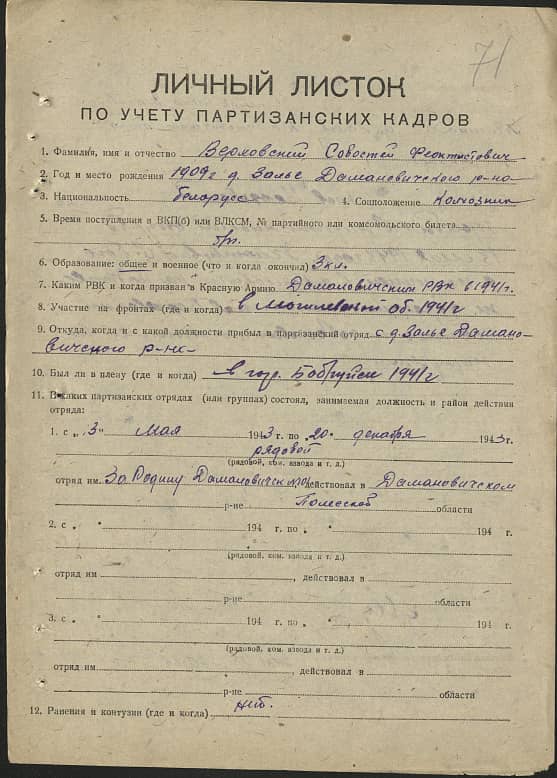 71
ЛИЧНЫЙ ЛИСТОК
ПО УЧЕТУ ПАРТИЗАНСКИХ КАДРОВ
1. Фамилия, имя и отчество Верховский Савостей Феоктистович
2. Год и место рождения 1909 г д. Залье Дамановичского р-на
3. Национальность белорусс 4. Соцположение Колхозник
5. Время поступления в ВКП(б) или ВЛКСМ, № партийного или комсомольского билета
б/п.
6. Образование: общее и военное (что и когда окончил) 3 кл.
7. Каким РВК и когда призван в Красную Армию Дамановичским РВК в 1941 г.
8. Участие на фронтах (где и когда) в Могилевской об. 1941 г
9. Откуда, когда и с какой должности прибыл в партизанский отряд с д. Залье Дамано-
вичского р-на
10. Был ли в плену (где и когда) в гор. Бобруйск 1941 г
11. В каких партизанских отрядах (или группах) состоял, занимаемая должность и район действия
отряда:
1. с „3" мая 1943 г. по „20" декабря 1943 г.
рядовой
(рядовой, ком. взвода и т. д.)
отряд им. За Родину Дамановичск действовал в Дамановичском
р-не Полесской области
2. с „ " 194 г. по „ " 194 г.
(рядовой, ком. взвода и т. д.)
отряд им , действовал в
р-не области
3. с „ " 194 г. по „ " 194 г.
(рядовой, ком. взвода и т. д.)
отряд им , действовал в
р-не области
12. Ранения и контузии (где и когда) нет.